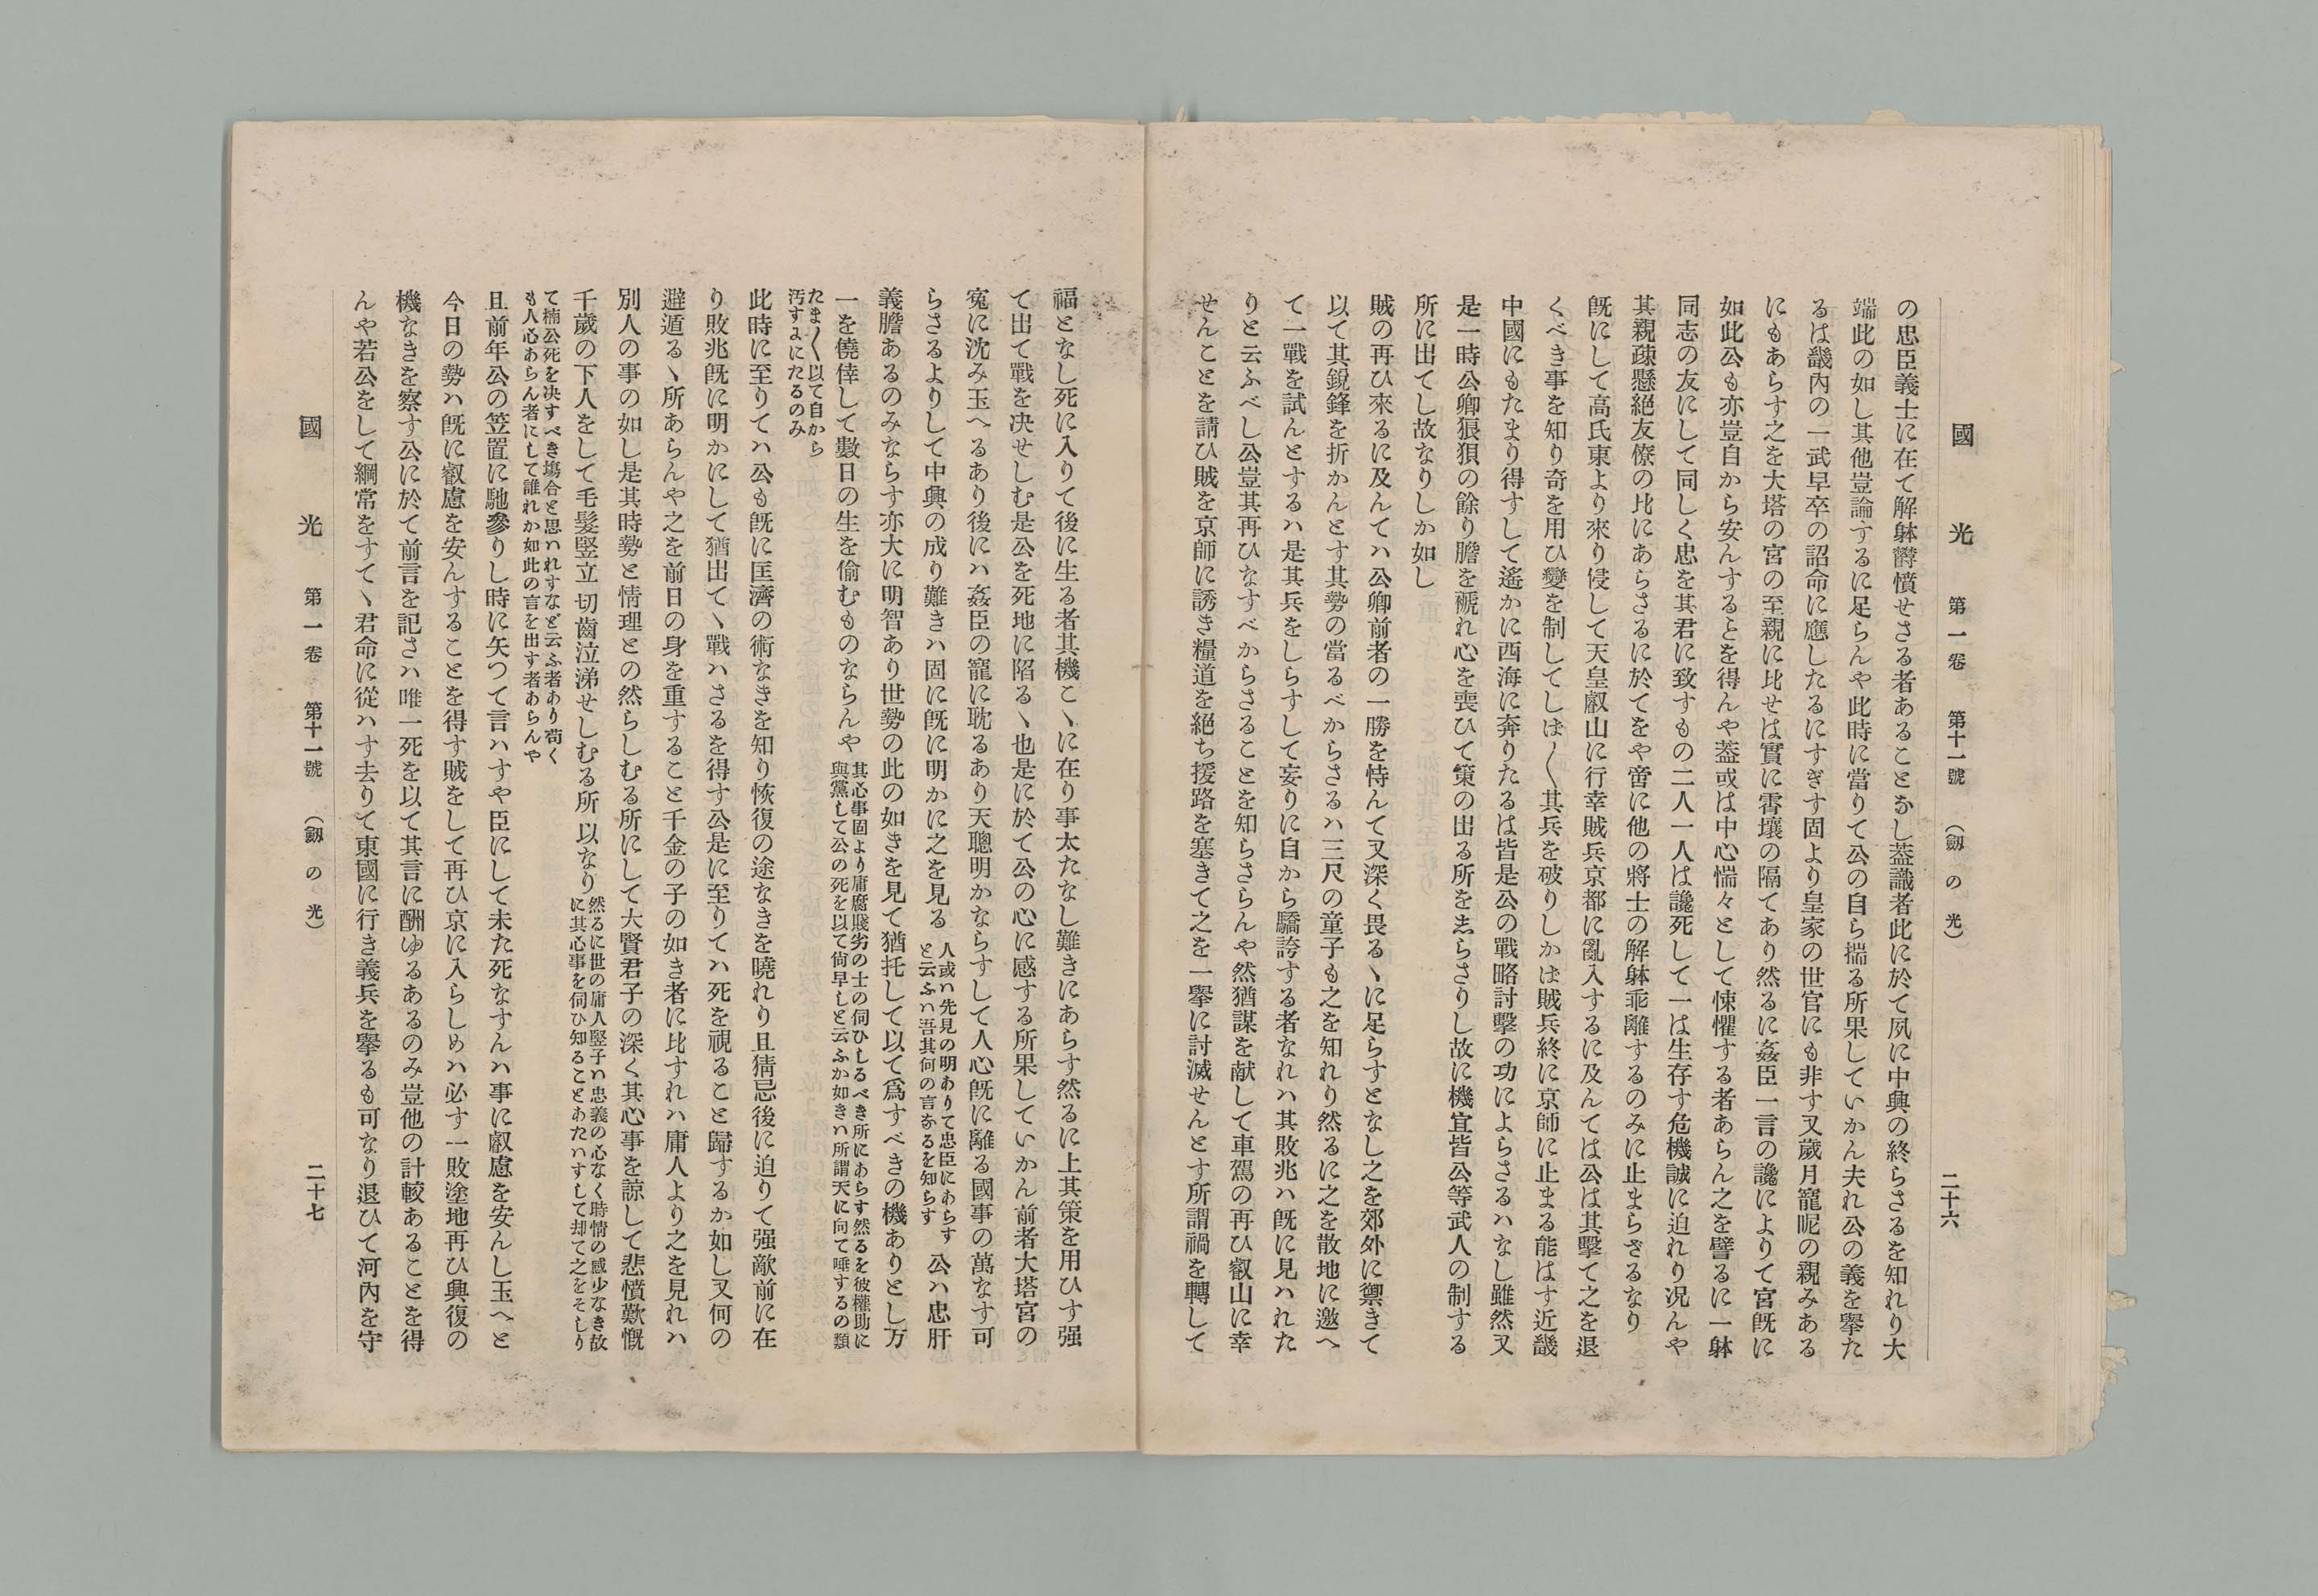 國光 第一卷 第十一號 (劔の光) 二十六
の忠臣義士に在て解躰欝憤せさる者あることなし葢識者此に於て夙に中興の終らさるを知れり大
端此の如し其他豈論するに足らんや此時に當りて公の自ら揣る所果していかん夫れ公の義を擧た
るは畿內の一武早卒の詔命に應したるにすぎす固より皇家の世官にも非す又歲月寵昵の親みある
にもあらす之を大塔の宮の至親に比せは實に霄壤の隔てあり然るに姦臣一言の讒によりて宮旣に
如此公も亦豈自から安んするヿを得んや葢或は中心惴々として悚懼する者あらん之を譬るに一躰
同志の友にして同しく忠を其君に致すもの二人一人は讒死して一は生存す危機誠に迫れり况んや
其親疎懸絕友僚の比にあらさるに於てをや啻に他の將士の解躰乖離するのみに止まらざるなり
旣にして高氏東より來り侵して天皇叡山に行幸賊兵京都に亂入するに及んては公は其擊て之を退
くべき事を知り奇を用ひ變を制してしは〱其兵を破りしかは賊兵終に京師に止まる能はす近畿
中國にもたまり得すして遙かに西海に奔りたるは皆是公の戰畧討擊の功によらさるハなし雖然又
是一時公卿狼狽の餘り膽を褫れ心を喪ひて策の出る所を志らさりし故に機宜皆公等武人の制する
所に出てし故なりしか如し
賊の再ひ來るに及んてハ公卿前者の一勝を恃んて又深く畏るヽに足らすとなし之を郊外に禦きて
以て其銳鋒を折かんとす其勢の當るべからさるハ三尺の童子も之を知れり然るに之を散地に邀へ
て一戰を試んとするハ是其兵をしらすして妄りに自から驕誇する者なれハ其敗兆ハ旣に見ハれた
りと云ふべし公豈其再ひなすべからさることを知らさらんや然猶謀を献して車駕の再ひ叡山に幸
せんことを請ひ賊を京師に誘き糧道を絕ち援路を塞きて之を一擧に討滅せんとす所謂禍を轉して
福となし死に入りて後に生る者其機こヽに在り事太たなし難きにあらす然るに上其策を用ひす强
て出て戰を决せしむ是公を死地に陷るヽ也是に於て公の心に感する所果していかん前者大塔宮の
寃に沈み玉へるあり後にハ姦臣の寵に耽るあり天聰明かならすして人心旣に離る國事の萬なす可
らさるよりして中興の成り難きハ固に旣に明かに之を見る 人或ハ先見の明ありて忠臣にあらす
と云ふハ吾其何の言なるを知らす 公ハ忠肝
義膽あるのみならす亦大に明智あり世勢の此の如きを見て猶托して以て爲すべきの機ありとし万
一を僥倖して數日の生を偷むものならんや 其心事固より庸腐賤劣の士の伺ひしるべき所にあらす然るを彼權助に
與黨して公の死を以て尙早しと云ふか如きハ所謂天に向て唾するの類
たま〱以て自から
汚すよにたるのみ
此時に至りてハ公も旣に匡濟の術なきを知り恢復の途なきを曉れり且猜忌後に迫りて强敵前に在
り敗兆旣に明かにして猶出てヽ戰ハさるを得す公是に至りてハ死を視ること歸するか如し又何の
避遁るヽ所あらんや之を前日の身を重すること千金の子の如き者に比すれハ庸人より之を見れハ
別人の事の如し是其時勢と情理との然らしむる所にして大賢君子の深く其心事を諒して悲憤歎慨
千歲の下人をして毛髮竪立切齒泣涕せしむる所以なり 然るに世の庸人竪子ハ忠義の心なく時情の感少なき故
に其心事を伺ひ知ることあたハすして却て之をそしり
て楠公死を决すべき塲合と思ハれすなど云ふ者あり苟く
も人心あらん者にして誰れか如此の言を出す者あらんや
且前年公の笠置に馳參りし時に矢つて言ハすや臣にして未た死なすんハ事に叡慮を安んし玉へと
今日の勢ハ旣に叡慮を安んすることを得す賊をして再ひ京に入らしめハ必す一敗塗地再ひ興復の
機なきを察す公に於て前言を記さハ唯一死を以て其言に酬ゆるあるのみ豈他の計較あることを得
んや若公をして綱常をすてヽ君命に從ハす去りて東國に行き義兵を擧るも可なり退ひて河內を守
國光 第一卷 第十一號 (劔の光) 二十七